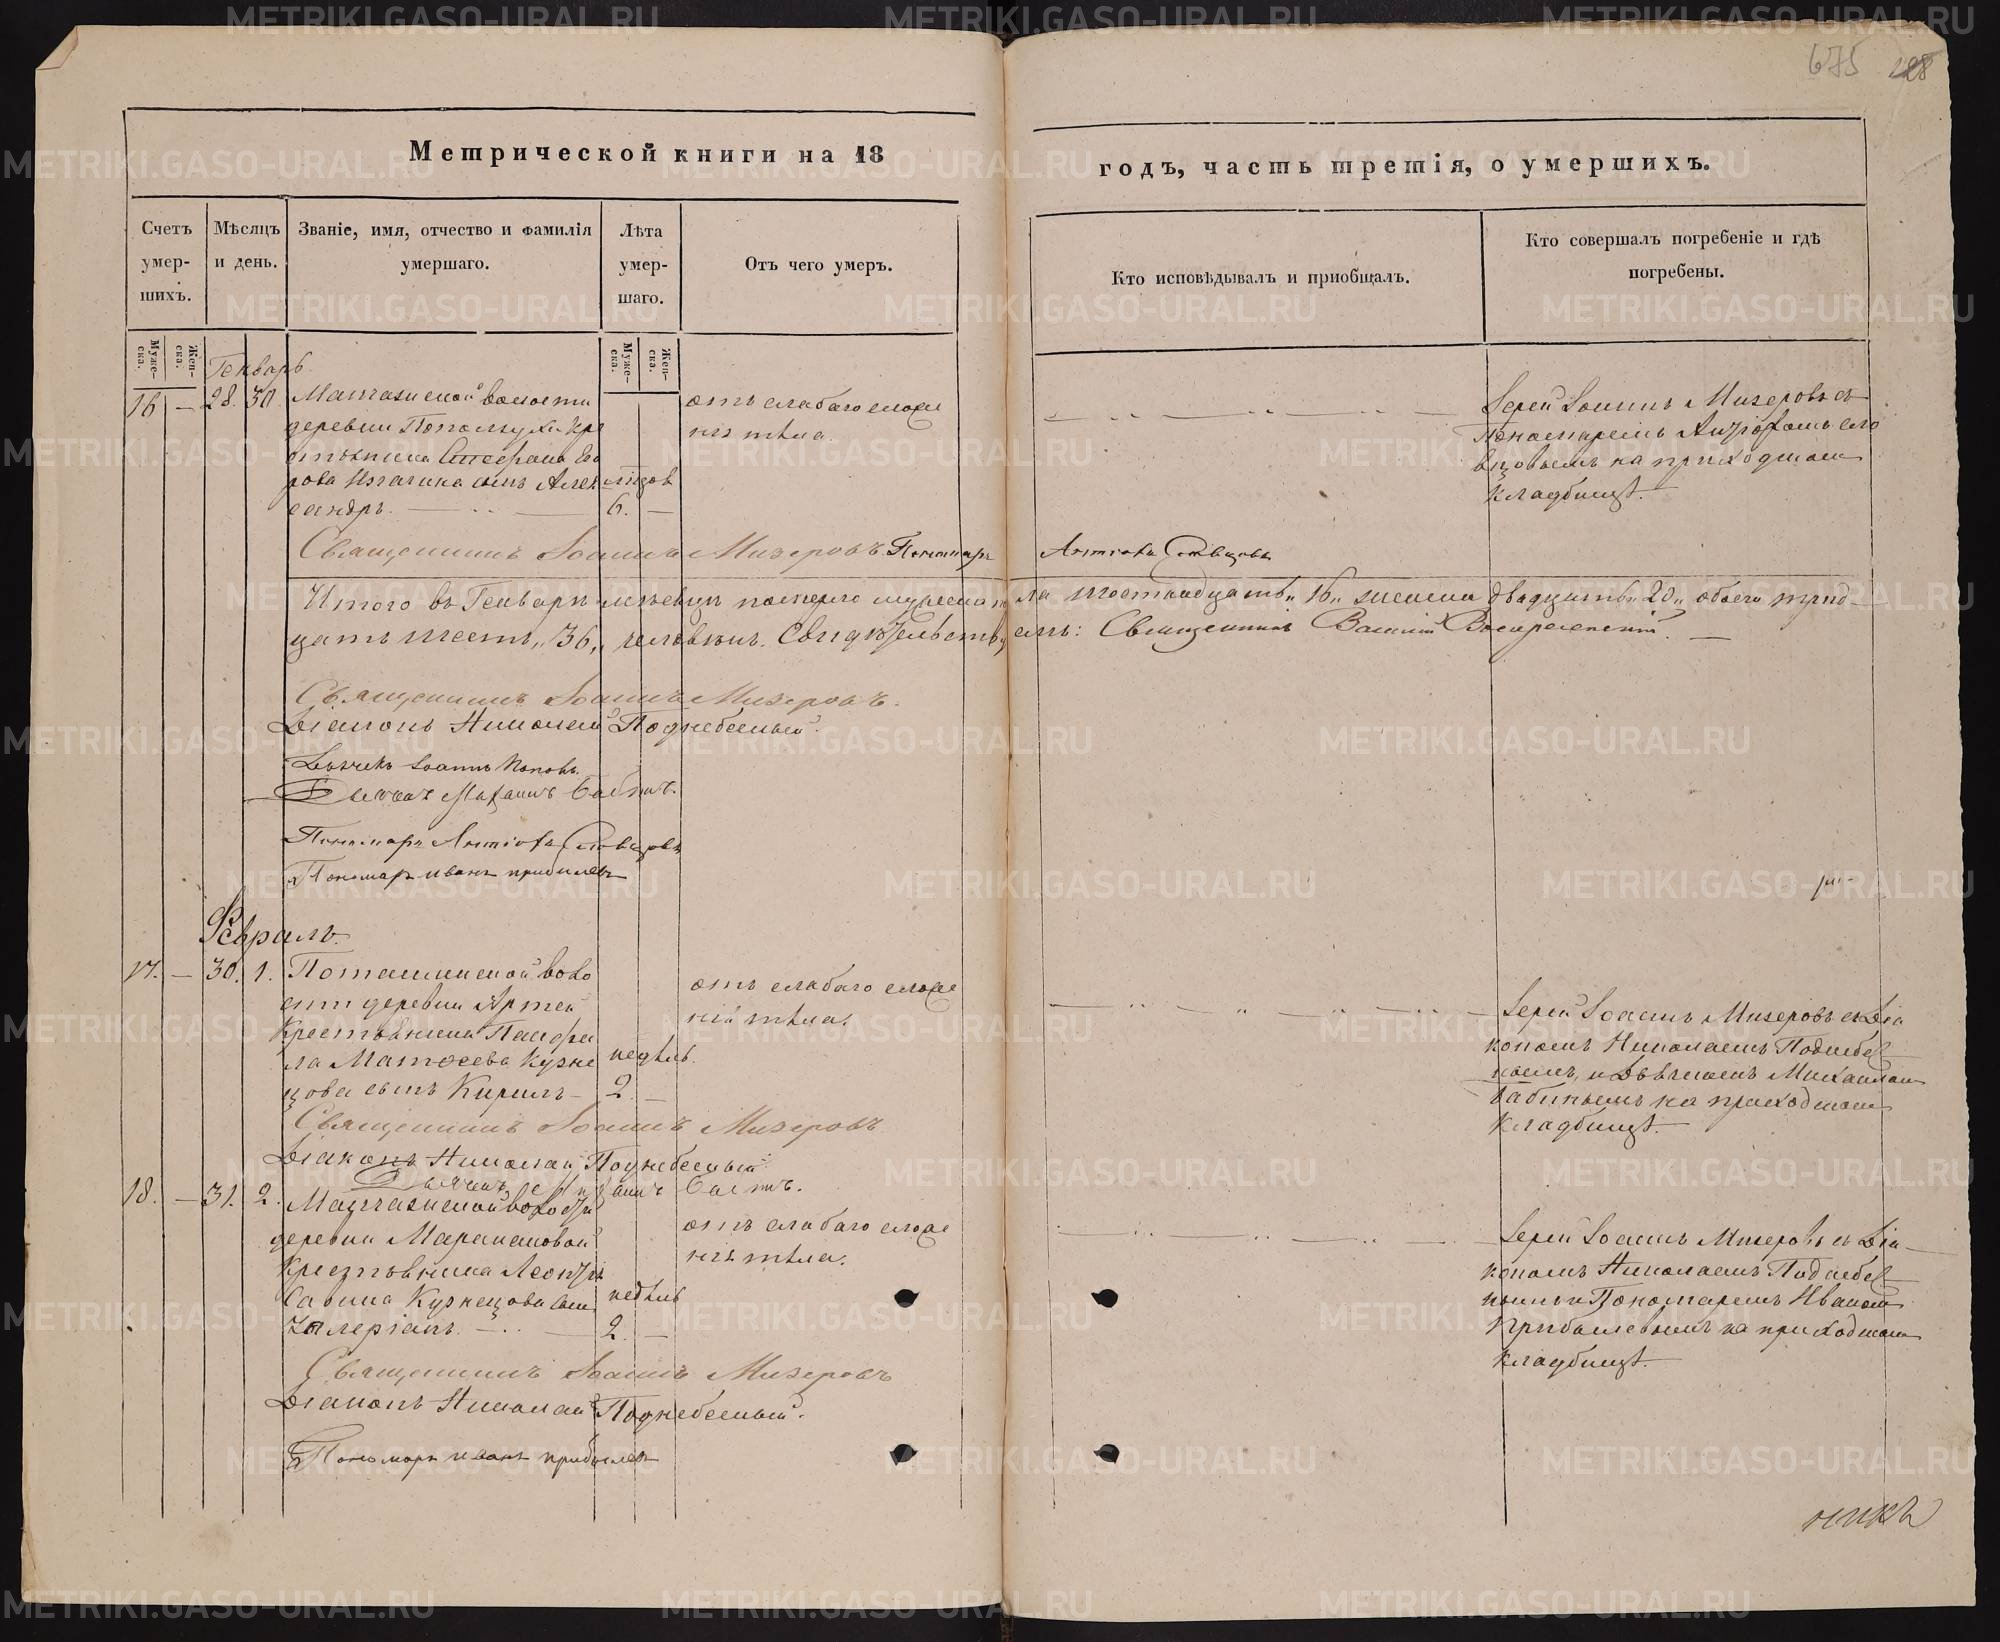 675 128
Метрической книги на 18
годъ, часть третія, о умершихъ.
Счетъ умер-шихъ.
Мѣсяцъ и день.
Званіе, имя, отчество и фамилія умершаго.
Лѣта умер-шаго.
Отъ чего умеръ.
Кто исповѣдывалъ и приобщалъ.
Кто совершалъ погребеніе и гдѣ погребены.
Муже-ска.
Жен-ска.
Муже-ска.
Жен-ска.
Генварь
16 — 28. 30.
волости
деревни Кре
стьянина Стефана Его
рова сынъ Алек
сандръ.
мѣсяцов
6. —
отъ слабаго сложе
нія тѣла.
Іерей Іоаннъ Мизеровъ съ
Пономаремъ Сло
вцовымъ на приходском
кладбищѣ.
Священникъ Іоаннъ Мизеровъ. Пономарь
Словцовъ
Итого въ Генварѣ мѣсяцѣ померло мужеска по
ла шестнадцать „16„ женска двадцать „20„ обоего трид-
цать шесть „36„ человѣкъ. Свидѣтельству
емъ: Священникъ Василій Воскресенскій. —
Священникъ Іоаннъ Мизеровъ.
Діаконъ Николай Поднебесный.
Дьячекъ Іоаннъ Поповъ.
Дьячекъ Михаилъ Бабинъ.
Пономарь Словцовъ
Пономарь иванъ прибылевъ
Февраль.
17. — 30. 1.
Поташинской воло
сти деревни Артей
Крестьянина Панфи
ла Матѳеева Кузне
цова сынъ Кирилъ —
недѣль.
2. —
отъ слабаго сложе
нія тѣла.
Іерей Іоаннъ Мизеровъ съ Діа
кономъ Николаемъ Поднебес
нымъ, и Дьячкомъ Михаилом
Бабинымъ на приходском
кладбищѣ.
Священникъ Іоаннъ Мизеровъ
Діаконъ Николай Поднебесный
Дьячекъ Михаилъ Бабинъ.
18. — 31. 2.
волости
деревни
Крестьянина Леонтія
Савина Кузнецова сын
Валеріанъ.
недѣль
2. —
отъ слабаго сложе
нія тѣла.
Іерей Іоаннъ Мизеровъ съ Діа
кономъ Николаемъ Поднебес
нымъ и Пономаремъ Иваном
Прибылевымъ на приходском
кладбищѣ.
Священникъ Іоаннъ Мизеровъ
Діаконъ Николай Поднебесный.
Пономарь иванъ прибылевъ
METRIKI.GASO-URAL.RU